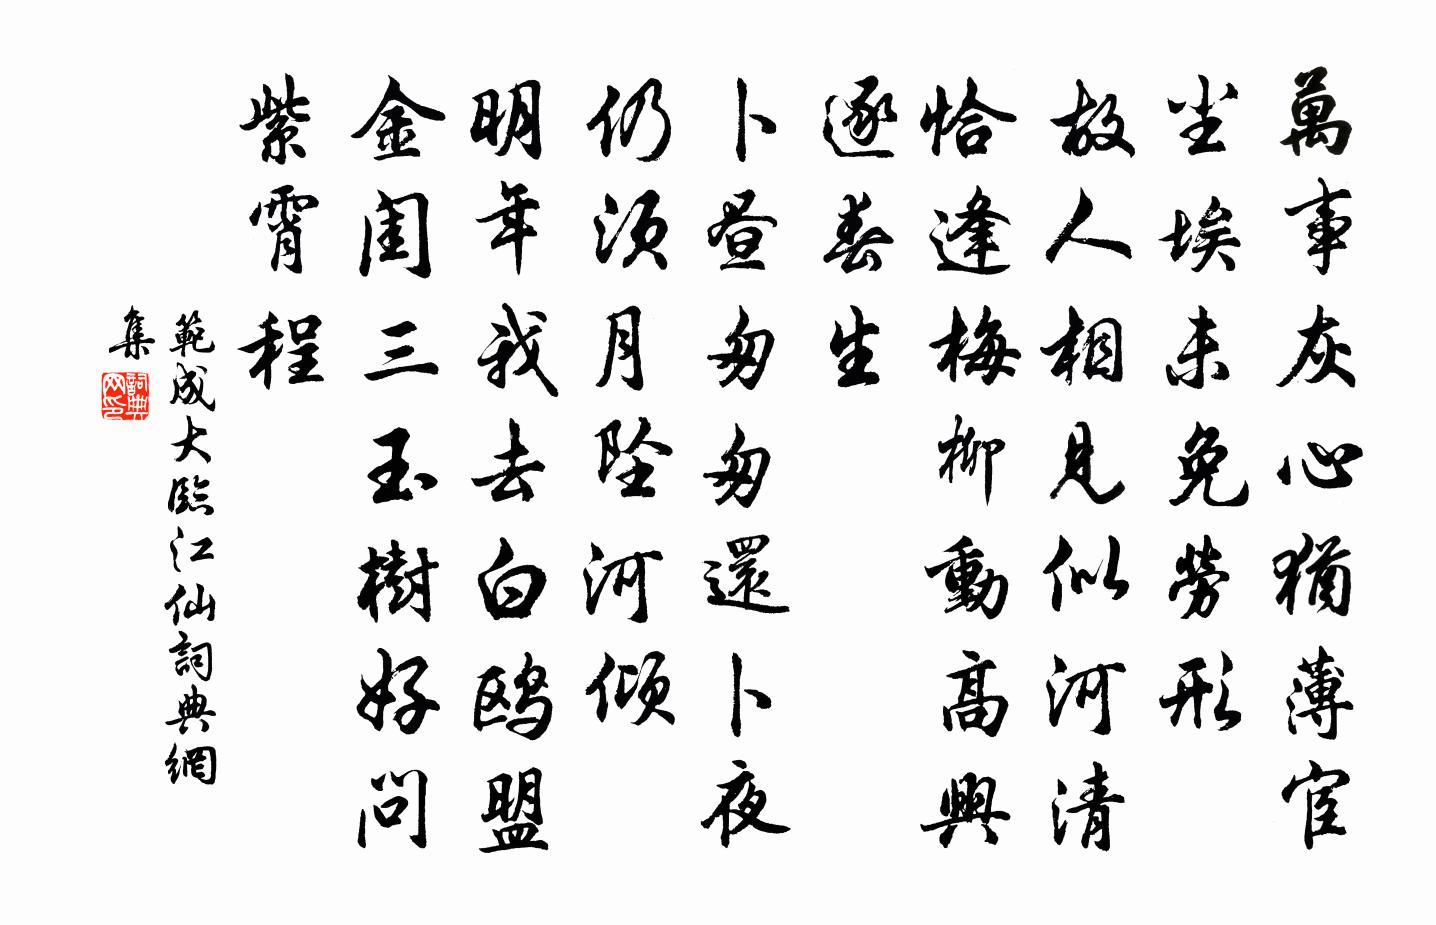 萬事灰心猶薄宦
尘埃未免勞形
故人相見似河清
恰逢梅柳動高興
逐春生
卜昼匆匆還卜夜
仍须月坠河倾
明年我去白鸥盟
金闺三玉樹好问
紫霄程
範成大臨江仙詞典網
集
詞典
网印